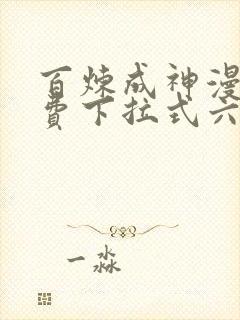 百炼成神漫
费下拉式六
一淼